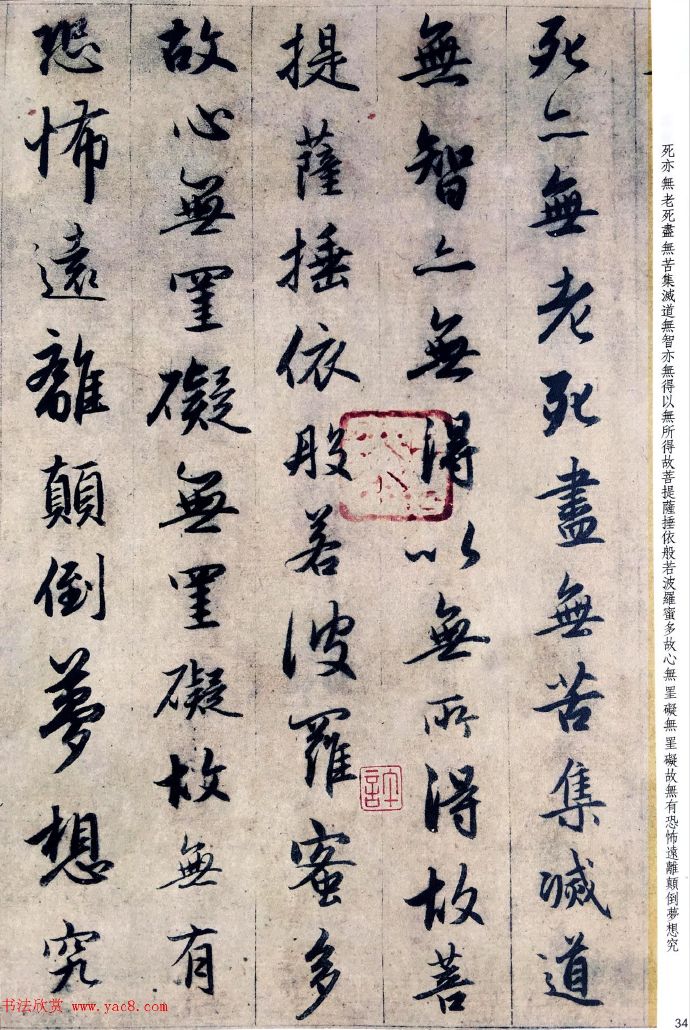 死亦無老死盡無苦集滅道
無智亦無得以無所得故菩
提薩捶依般若波羅蜜多
故心無罣礙無罣礙故無有
恐怖遠離顛倒夢想究
死亦無老死盡無苦集滅道無智亦無得以無所得故菩提薩捶依般若波羅蜜多故心無罣礙無罣礙故無有恐怖遠離顛倒夢想究
书法欣赏 www.yac8.com
34